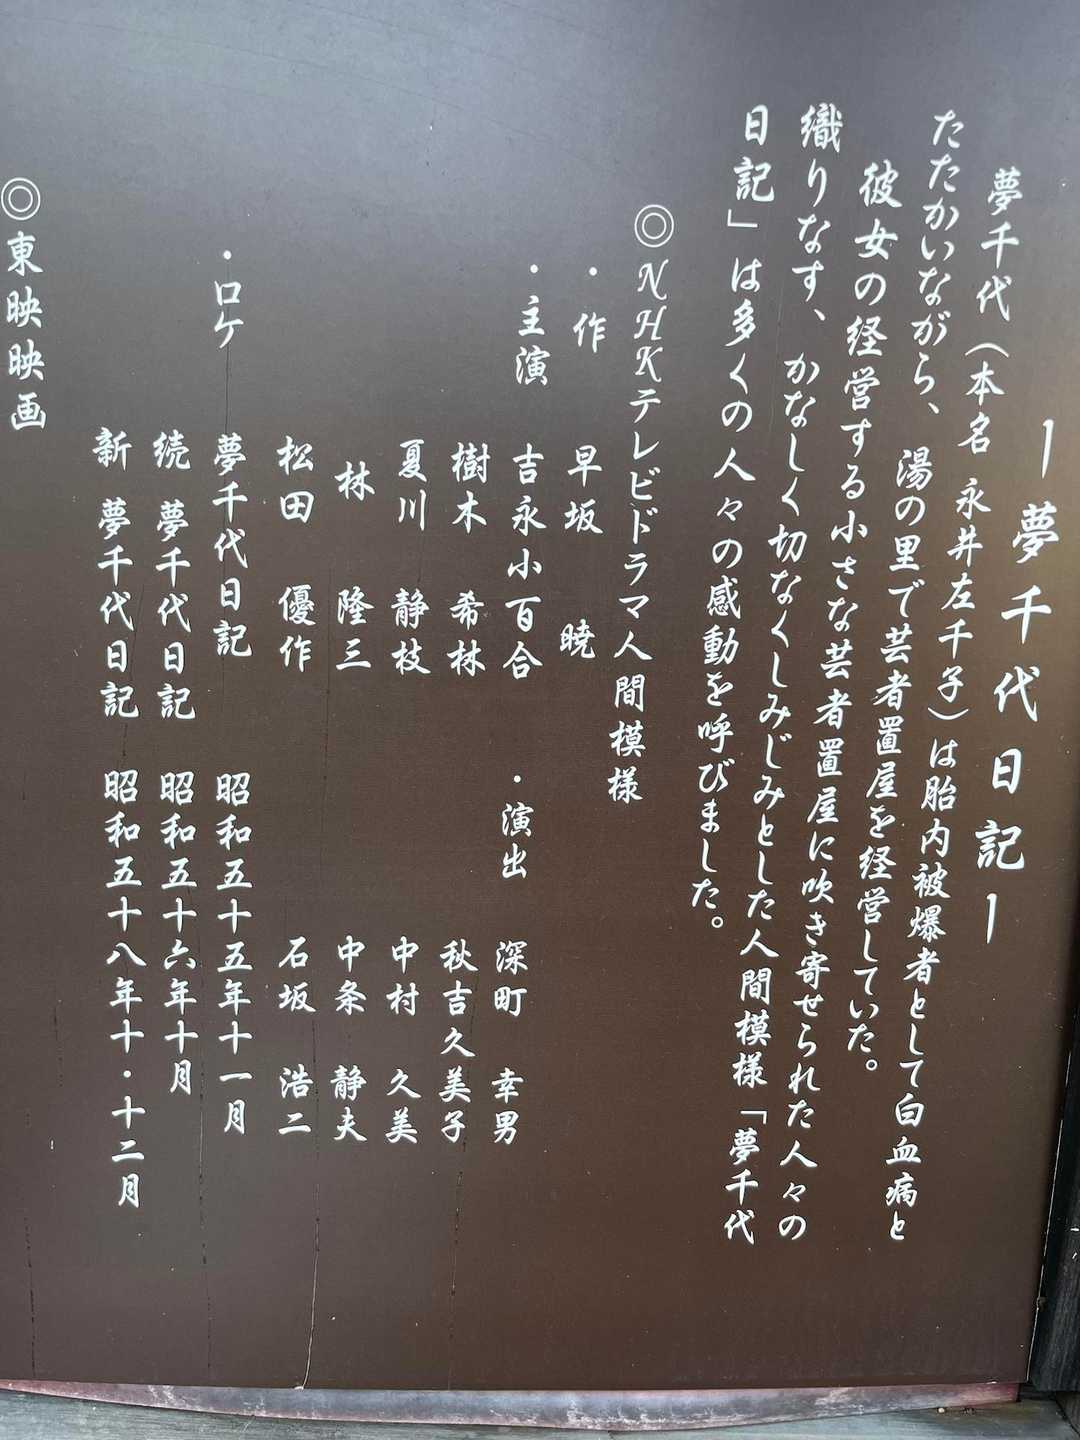 ―夢千代日記―
夢千代(本名 永井左千子)は胎内被爆者として白血病と
たたかいながら、湯の里で芸者置屋を経営していた。
彼女の経営する小さな芸者置屋に吹き寄せられた人々の
織りなす、かなしく切なくしみじみとした人間模様「夢千代
日記」は多くの人々の感動を呼びました。
◎NHKテレビドラマ人間模様
・作 早坂 暁
・主演 吉永小百合 ・演出 深町 幸男
樹木 希林 秋吉久美子
夏川 静枝 中村 久美
林 隆三 中条 静夫
松田 優作 石坂 浩二
・ロケ 夢千代日記 昭和五十五年十一月
続 夢千代日記 昭和五十六年十月
新 夢千代日記 昭和五十八年十・十二月
◎東映映画